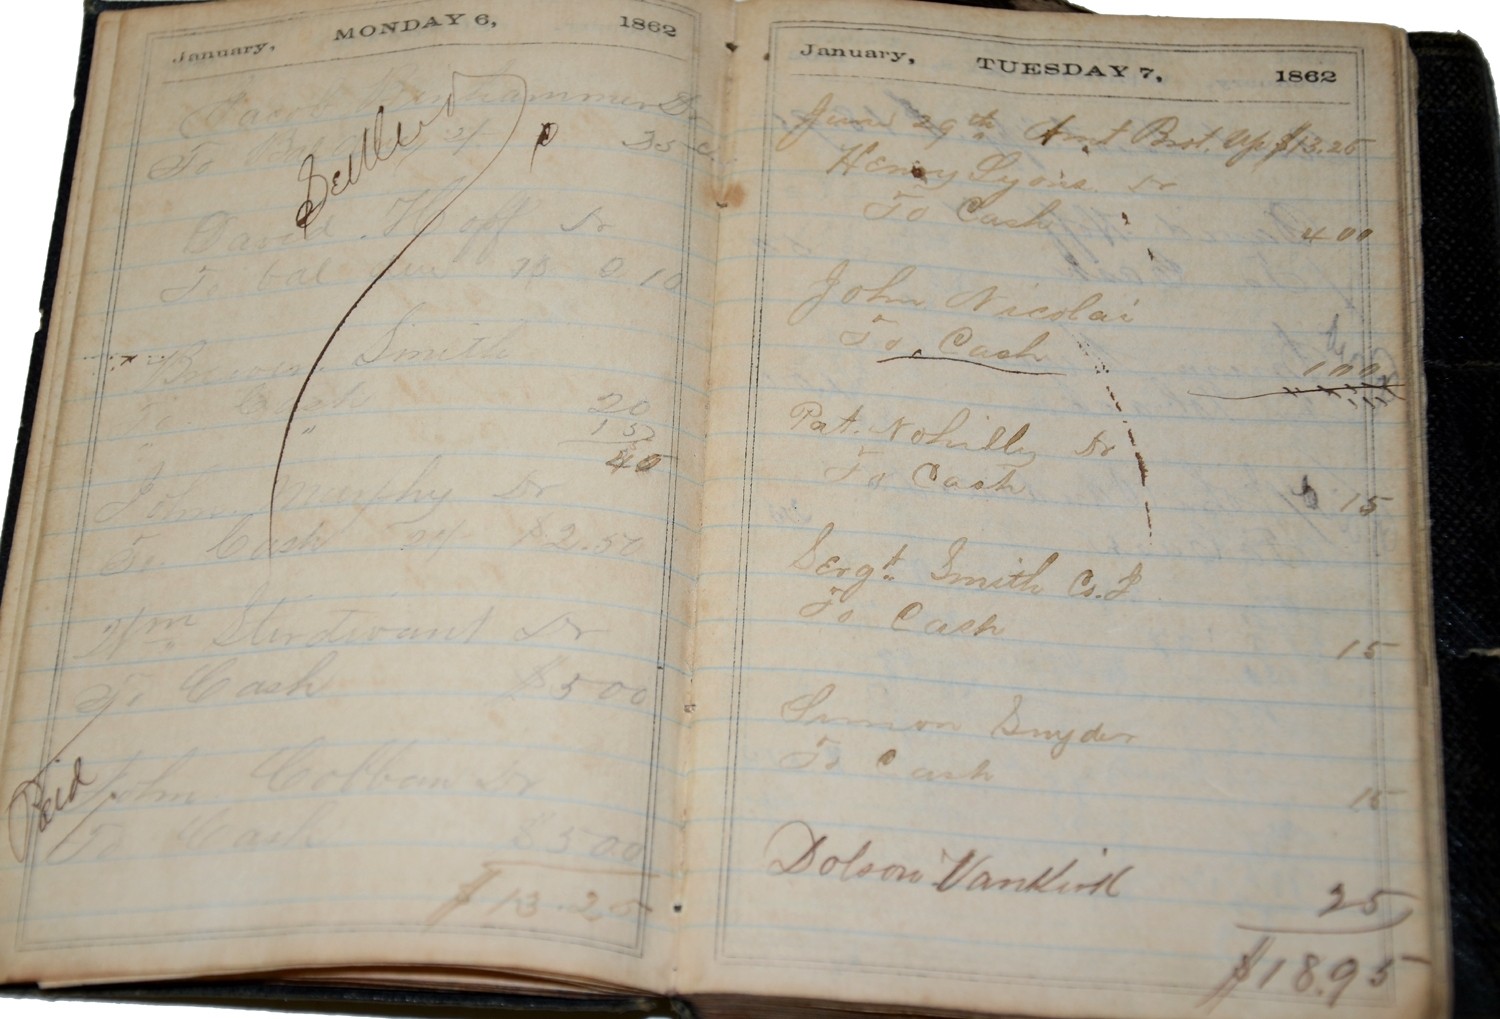 January, MONDAY 6, 1862
Jacob Dr
Settled
To Bal 35
David Hoff Dr
To bal due 0 10
Smith
To Cash 20
" " 15
40
John Murphy Dr
To Cash $2.50
Wm Sturdivant Dr
To Cash $5 00
Paid
John Dr
To Cash $5 00
$13.25
January, TUESDAY 7, 1862
June 29th Amt Brot. Up $13.25
Henry Lyons Dr
To Cash 4 00
John Nicolai
To Cash 1 00
Pat. Dr
To Cash 15
Sergt. Smith Co.
To Cash 15
Simon Snyder
To Cash 15
Dolson VanKirk 25
$18.95